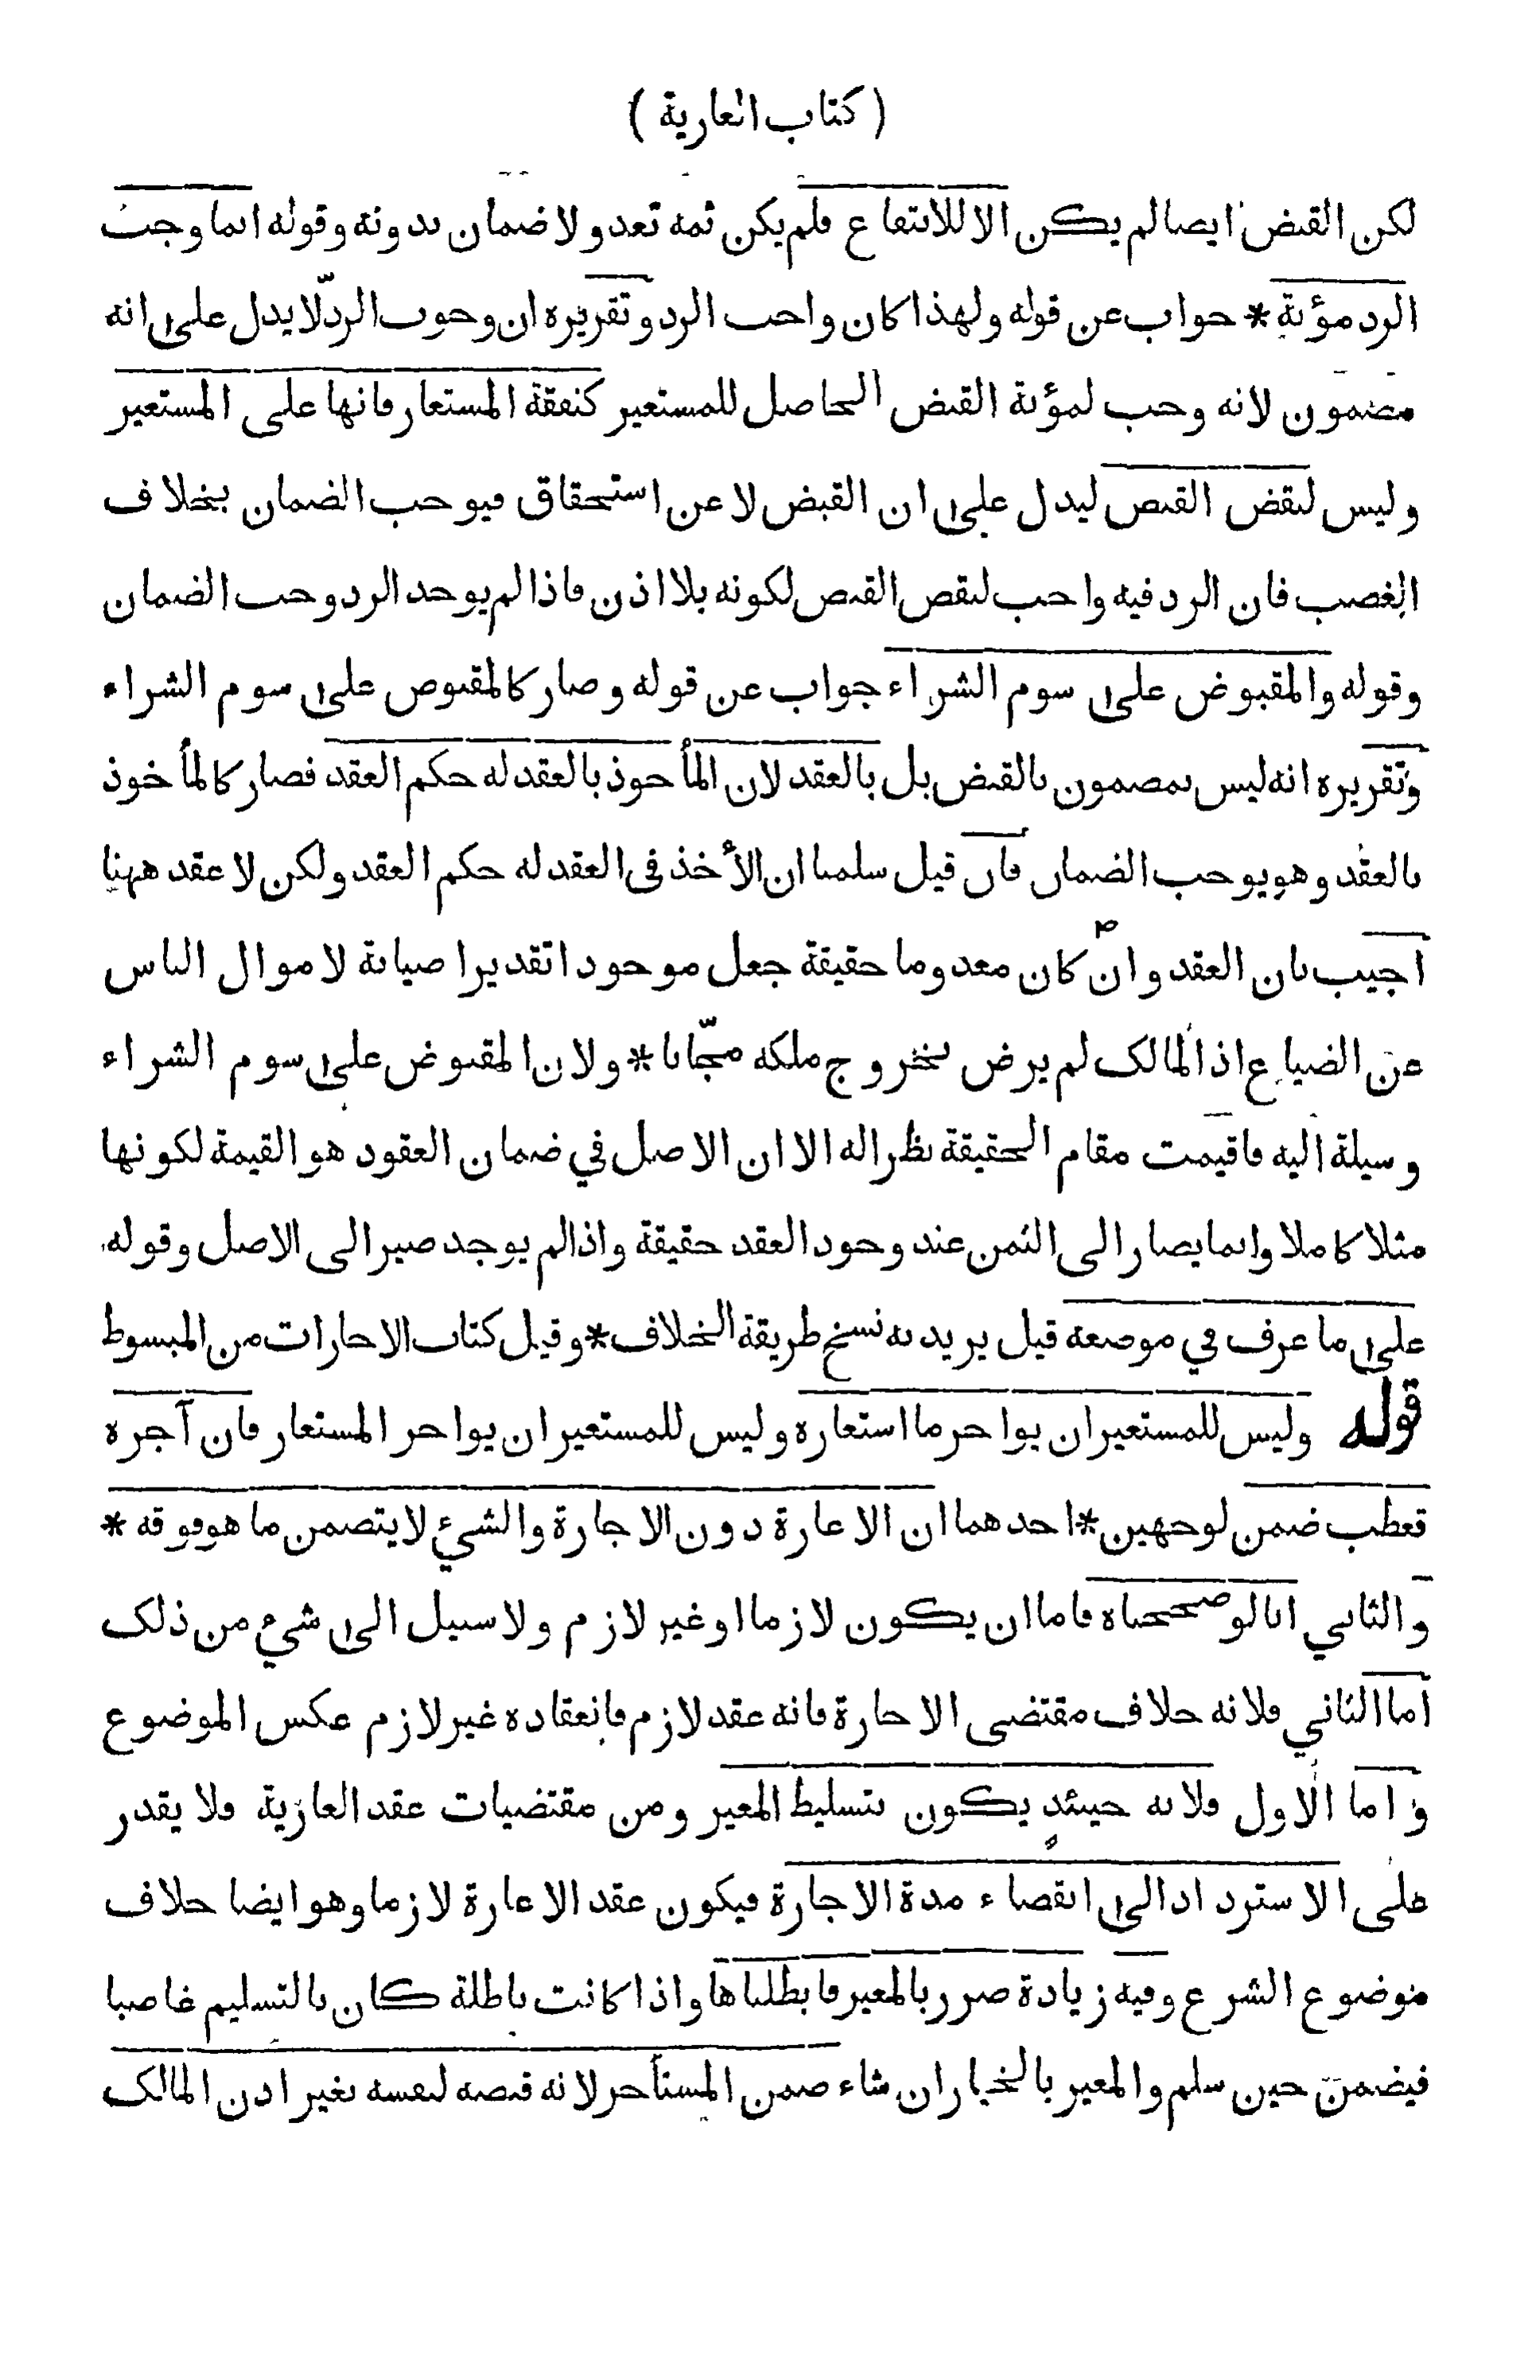 ( كتاب العارية )
لكن القبض ايضا لم يكن الا للانتفاع فلم يكن ثمه تعد ولا ضمان بدونه وقوله انما وجب
الرد مؤنة * جواب عن قوله ولهذا كان واجب الرد وتقريره ان وجوب الردّ لا يدل على انه
مضمون لانه وجب لمؤنة القبض الحاصل للمستعير كنفقة المستعار فانها على المستعير
وليس لنقض القبض ليدل على ان القبض لا عن استحقاق فيوجب الضمان بخلاف
الغصب فان الرد فيه واجب لنقض القبض لكونه بلا اذن فاذا لم يوجد الرد وجب الضمان
وقوله والمقبوض على سوم الشراء جواب عن قوله وصار كالمقبوض على سوم الشراء
وتقريره انه ليس بمضمون بالقبض بل بالعقد لان المأخوذ بالعقد له حكم العقد فصار كالمأخوذ
بالعقد وهو يوجب الضمان فان قيل سلمنا ان الأخذ فى العقد له حكم العقد ولكن لا عقد ههنا
اجيب بان العقد وان كان معدوما حقيقة جعل موجودا تقديرا صيانة لاموال الناس
عن الضياع اذ المالك لم يرض بخروج ملكه مجّانا * ولان المقبوض على سوم الشراء
وسيلة اليه فاقيمت مقام الحقيقة نظرا له الا ان الاصل في ضمان العقود هو القيمة لكونها
مثلا كاملا وانما يصار الى الثمن عند وجود العقد حقيقة واذا لم يوجد صير الى الاصل وقوله
على ما عرف في موضعه قيل يريد به نسخ طريقة الخلاف * وقيل كتاب الاجارات من المبسوط
قوله وليس للمستعير ان يواجر ما استعاره وليس للمستعير ان يواجر المستعار فان آجره
فعطب ضمن لوجهين * احدهما ان الاعارة دون الاجارة والشيء لا يتضمن ما هو فوقه *
والثاني انا لو صححناه فاما ان يكون لازما او غير لازم ولا سبيل الى شيء من ذلك
اما الثاني فلانه خلاف مقتضى الاجارة فانه عقد لازم فانعقاده غير لازم عكس الموضوع
واما الاول فلانه حينئذٍ يكون بتسليط المعير ومن مقتضيات عقد العارية فلا يقدر
على الاسترداد الى انقضاء مدة الاجارة فيكون عقد الاعارة لازما وهو ايضا خلاف
موضوع الشرع وفيه زيادة ضرر بالمعير فابطلناها واذا كانت باطلة كان بالتسليم غاصبا
فيضمن حين سلم والمعير بالخيار ان شاء ضمن المستأجر لانه قبضه لنفسه بغير اذن المالك